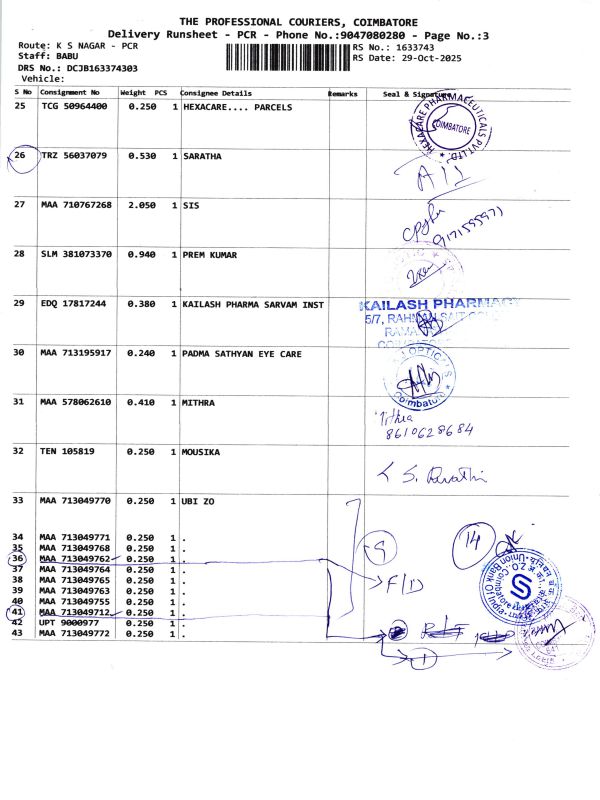 THE PROFESSIONAL COURIERS, COIMBATORE
Delivery Runsheet - PCR - Phone No.:9047080280 - Page No.:3
Route: K S NAGAR - PCR
RS No.: 1633743
Staff: BABU
RS Date: 29-Oct-2025
DRS No.: DCJB163374303
Vehicle:
S No Consignment No Weight PCS Consignee Details Remarks Seal & Signature
25 TCG 50964400 0.250 1 HEXACARE.... PARCELS
HEXACARE PHARMACEUTICALS PVT LTD.
COIMBATORE
26 TRZ 56037079 0.530 1 SARATHA
27 MAA 710767268 2.050 1 SIS
9171595971
28 SLM 381073370 0.940 1 PREM KUMAR
29 EDQ 17817244 0.380 1 KAILASH PHARMA SARVAM INST
KAILASH PHARMACY
5/7, RAHMAN SAIT COLONY
30 MAA 713195917 0.240 1 PADMA SATHYAN EYE CARE
OPTICALS
Coimbatore
31 MAA 578062610 0.410 1 MITHRA
8610628684
32 TEN 105819 0.250 1 MOUSIKA
S. Revathi
33 MAA 713049770 0.250 1 UBI ZO
34 MAA 713049771 0.250 1 .
35 MAA 713049768 0.250 1 .
36 MAA 713049762 0.250 1 .
37 MAA 713049764 0.250 1 .
38 MAA 713049765 0.250 1 .
39 MAA 713049763 0.250 1 .
40 MAA 713049755 0.250 1 .
41 MAA 713049712 0.250 1 .
42 UPT 9000977 0.250 1 .
43 MAA 713049772 0.250 1 .
9
14
F/D
1
Z.O., Coimbatore
Union Bank Of India